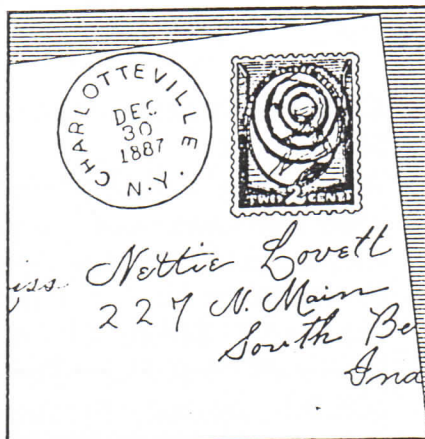 CHARLOTTEVILLE N.Y.
DEC
30
1887
TWO 2 CENTS
iss Nettie Lovett
227 N. Main
South Be
Ind